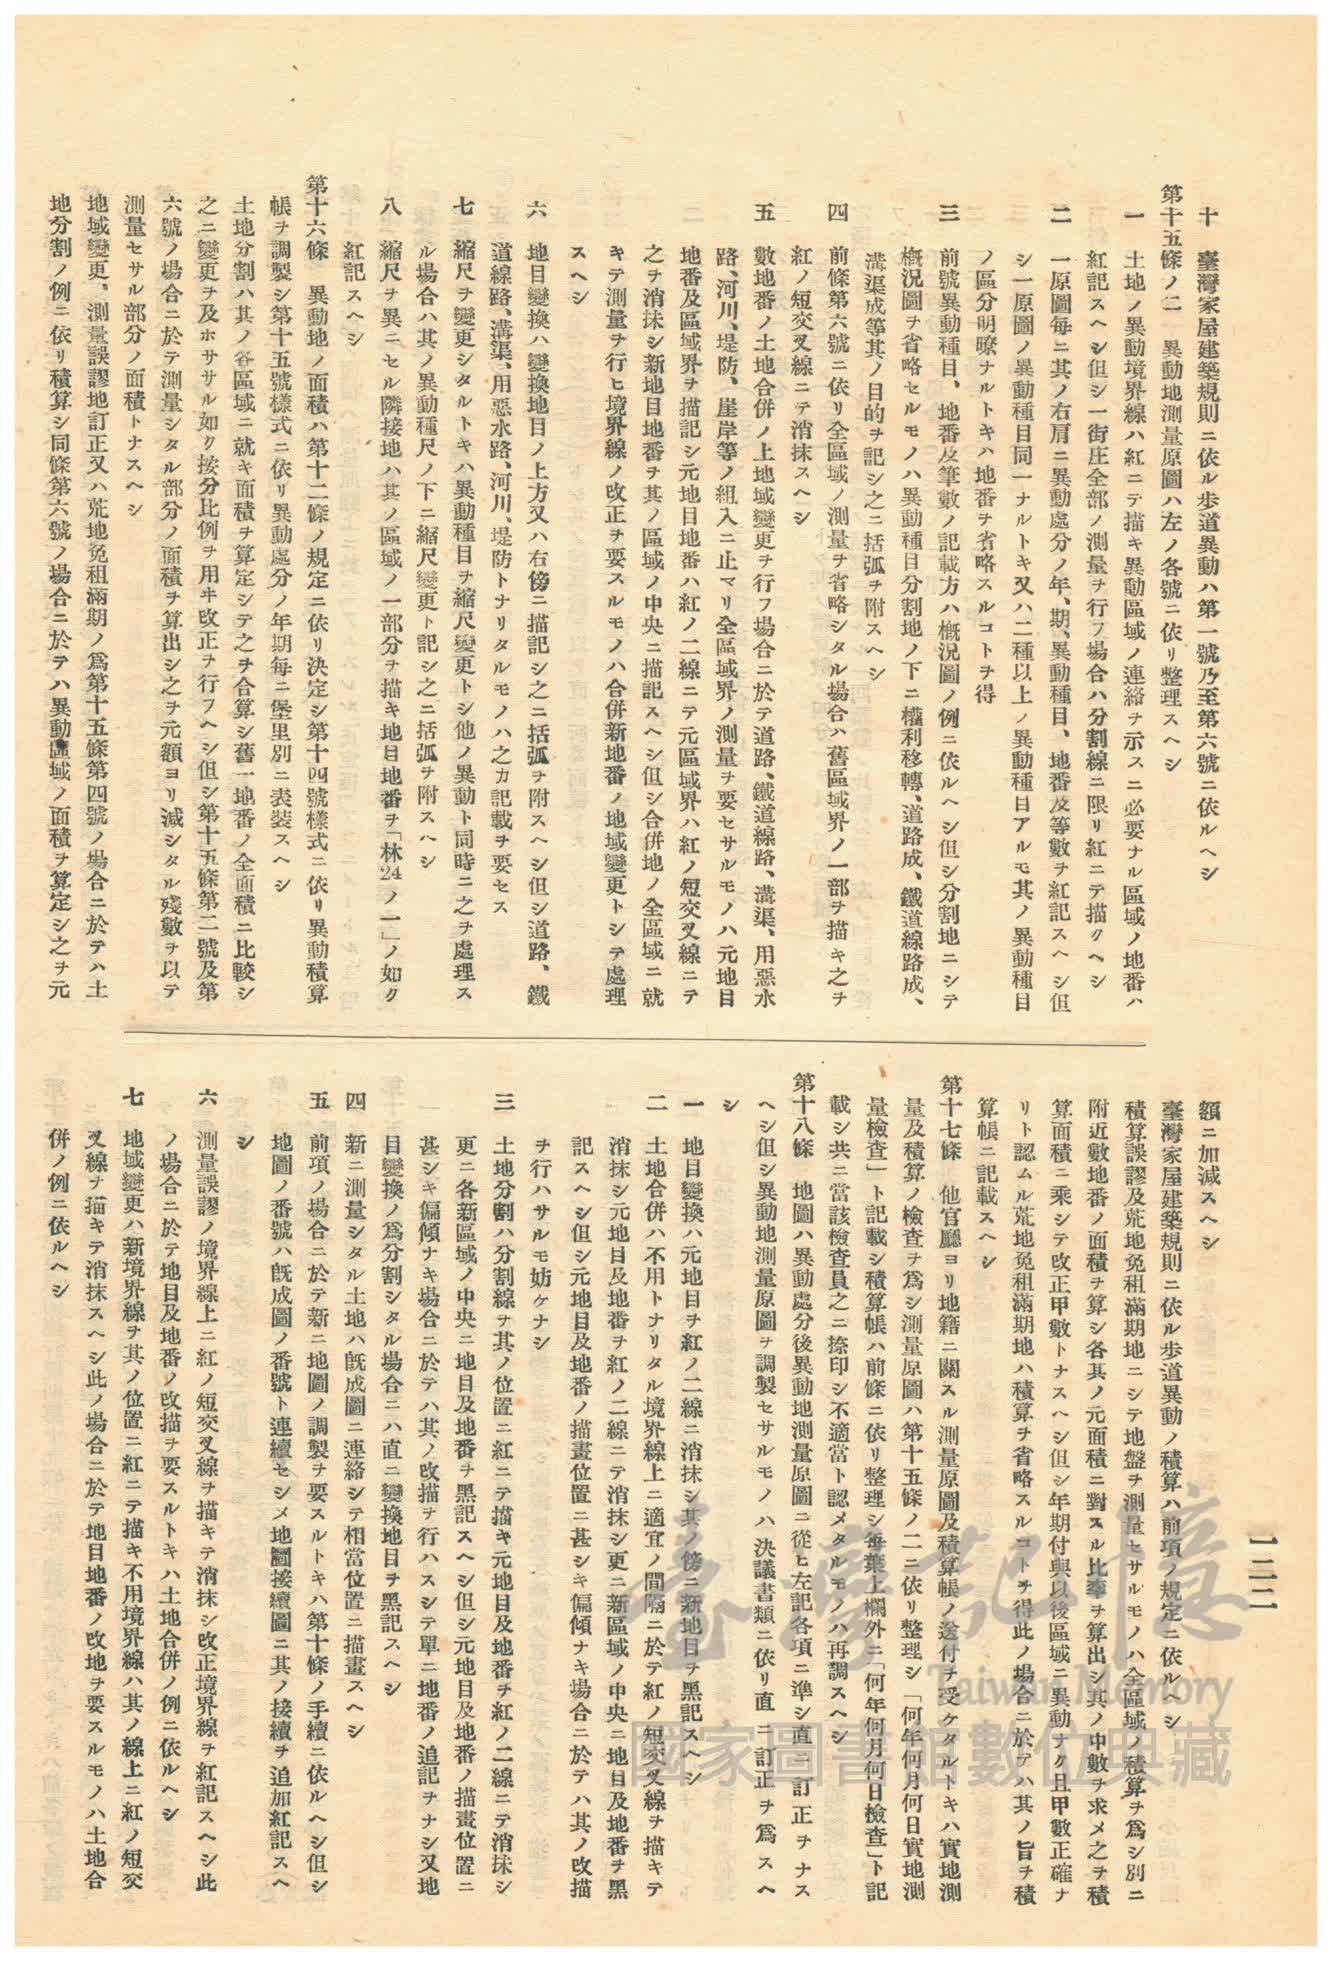 一二二
十　臺灣家屋建築規則ニ依ル步道異動ハ第一號乃至第六號ニ依ルヘシ
第十五條ノ二　異動地測量原圖ハ左ノ各號ニ依リ整理スヘシ
一　土地ノ異動境界線ハ紅ニテ描キ異動區域ノ連絡ヲ示スニ必要ナル區域ノ地番ハ
紅記スヘシ但シ一街庄全部ノ測量ヲ行フ場合ハ分割線ニ限リ紅ニテ描クヘシ
二　一原圖每ニ其ノ右肩ニ異動處分ノ年、期、異動種目、地番及等數ヲ紅記スヘシ但
シ一原圖ノ異動種目同一ナルトキ又ハ二種以上ノ異動種目アルモ其ノ異動種目
ノ區分明瞭ナルトキハ地番ヲ省略スルコトヲ得
三　前號異動種目、地番及筆數ノ記載方ハ槪況圖ノ例ニ依ルヘシ但シ分割地ニシテ
槪況圖ヲ省略セルモノハ異動種目分割地ノ下ニ權利移轉、道路成、鐵道線路成、
溝渠成等其ノ目的ヲ記シ之ニ括弧ヲ附スヘシ
四　前條第六號ニ依リ全區域ノ測量ヲ省略シタル場合ハ舊區域界ノ一部ヲ描キ之ヲ
紅ノ短交叉線ニテ消抹スヘシ
五　數地番ノ土地合併ノ上地域變更ヲ行フ場合ニ於テ道路、鐵道線路、溝渠、用惡水
路、河川、堤防、崖岸等ノ組入ニ止マリ全區域界ノ測量ヲ要セサルモノハ元地目
地番及區域界ヲ描記シ元地目地番ハ紅ノ二線ニテ元區域界ハ紅ノ短交叉線ニテ
之ヲ消抹シ新地目地番ヲ其ノ區域ノ中央ニ描記スヘシ但シ合併地ノ全區域ニ就
キテ測量ヲ行ヒ境界線ノ改正ヲ要スルモノハ合併新地番ノ地域變更トシテ處理
スヘシ
六　地目變換ハ變換地目ノ上方又ハ右傍ニ描記シ之ニ括弧ヲ附スヘシ但シ道路、鐵
道線路、溝渠、用惡水路、河川、堤防トナリタルモノハ之カ記載ヲ要セス
七　縮尺ヲ變更シタルトキハ異動種目ヲ縮尺變更トシ他ノ異動ト同時ニ之ヲ處理ス
ル場合ハ其ノ異動種尺ノ下ニ縮尺變更ト記シ之ニ括弧ヲ附スヘシ
八　縮尺ヲ異ニセル隣接地ハ其ノ區域ノ一部分ヲ描キ地目地番ヲ「林24ノ一」ノ如ク
紅記スヘシ
第十六條　異動地ノ面積ハ第十二條ノ規定ニ依リ決定シ第十四號樣式ニ依リ異動積算
帳ヲ調製シ第十五號樣式ニ依リ異動處分ノ年期每ニ堡里別ニ表裝スヘシ
土地分割ハ其ノ各區域ニ就キ面積ヲ算定シテ之ヲ合算シ舊一地番ノ全面積ニ比較シ
之ニ變更ヲ及ホササル如ク按分比例ヲ用ヰ改正ヲ行フヘシ但シ第十五條第二號及第
六號ノ場合ニ於テ測量シタル部分ノ面積ヲ算出シ之ヲ元額ヨリ減シタル殘數ヲ以テ
測量セサル部分ノ面積トナスヘシ
地域變更、測量誤謬地訂正又ハ荒地免租滿期ノ爲第十五條第四號ノ場合ニ於テハ土
地分割ノ例ニ依リ積算シ同條第六號ノ場合ニ於テハ異動區域ノ面積ヲ算定シ之ヲ元
額ニ加減スヘシ
臺灣家屋建築規則ニ依ル步道異動ノ積算ハ前項ノ規定ニ依ルヘシ
積算誤謬及荒地免租滿期地ニシテ地盤ヲ測量セサルモノハ全區域ノ積算ヲ爲シ別ニ
附近數地番ノ面積ヲ算シ各其ノ元面積ニ對スル比率ヲ算出シ其ノ中數ヲ求メ之ヲ積
算面積ニ乘シテ改正甲數トナスヘシ但シ年期付與以後區域ニ異動ナク且甲數正確ナ
リト認ムル荒地免租滿期地ハ積算ヲ省略スルコトヲ得此ノ場合ニ於テハ其ノ旨ヲ積
算帳ニ記載スヘシ
第十七條　他官廳ヨリ地籍ニ關スル測量原圖及積算帳ノ送付ヲ受ケタルトキハ實地測
量及積算ノ檢查ヲ爲シ測量原圖ハ第十五條ノ二ニ依リ整理シ「何年何月何日實地測
量檢查」ト記載シ積算帳ハ前條ニ依リ整理シ每葉上欄外ニ「何年何月何日檢查」ト記
載シ共ニ當該檢查員之ニ捺印シ不適當ト認メタルモノハ再調スヘシ
第十八條　地圖ハ異動處分後異動地測量原圖ニ從ヒ左記各項ニ準シ直ニ訂正ヲナス
ヘシ但シ異動地測量原圖ヲ調製セサルモノハ決議書類ニ依リ直ニ訂正ヲ爲スヘ
シ
一　地目變換ハ元地目ヲ紅ノ二線ニ消抹シ其ノ傍ニ新地目ヲ黑記スヘシ
二　土地合併ハ不用トナリタル境界線上ニ適宜ノ間隔ニ於テ紅ノ短交叉線ヲ描キテ
消抹シ元地目及地番ヲ紅ノ二線ニテ消抹シ更ニ新區域ノ中央ニ地目及地番ヲ黑
記スヘシ但シ元地目及地番ノ描畫位置ニ甚シキ偏傾ナキ場合ニ於テハ其ノ改描
ヲ行ハサルモ妨ケナシ
三　土地分割ハ分割線ヲ其ノ位置ニ紅ニテ描キ元地目及地番ヲ紅ノ二線ニテ消抹シ
更ニ各新區域ノ中央ニ地目及地番ヲ黑記スヘシ但シ元地目及地番ノ描畫位置ニ
甚シキ偏傾ナキ場合ニ於テハ其ノ改描ヲ行ハスシテ單ニ地番ノ追記ヲナシ又地
目變換ノ爲分割シタル場合ニハ直ニ變換地目ヲ黑記スヘシ
四　新ニ測量シタル土地ハ旣成圖ニ連絡シテ相當位置ニ描畫スヘシ
五　前項ノ場合ニ於テ新ニ地圖ノ調製ヲ要スルトキハ第十條ノ手續ニ依ルヘシ但シ
地圖ノ番號ハ旣成圖ノ番號ト連續セシメ地圖接續圖ニ其ノ接續ヲ追加紅記スヘ
シ
六　測量誤謬ノ境界線上ニ紅ノ短交叉線ヲ描キテ消抹シ改正境界線ヲ紅記スヘシ此
ノ場合ニ於テ地目及地番ノ改描ヲ要スルトキハ土地合併ノ例ニ依ルヘシ
七　地域變更ハ新境界線ヲ其ノ位置ニ紅ニテ描キ不用境界線ハ其ノ線上ニ紅ノ短交
叉線ヲ描キテ消抹スヘシ此ノ場合ニ於テ地目地番ノ改地ヲ要スルモノハ土地合
併ノ例ニ依ルヘシ
臺灣記憶
Taiwan Memory
國家圖書館數位典藏